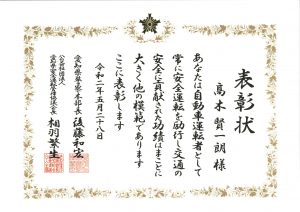 表彰状
高木賢一朗様
あなたは自動車運転者として
常に安全運転を励行し交通の
安全に貢献された功績はまことに
大きく他の模範であります
ここに表彰します
令和二年五月二十八日
愛知県警察本部長 後藤和宏
公益財団法人
愛知県交通安全協会会長 相羽繁生